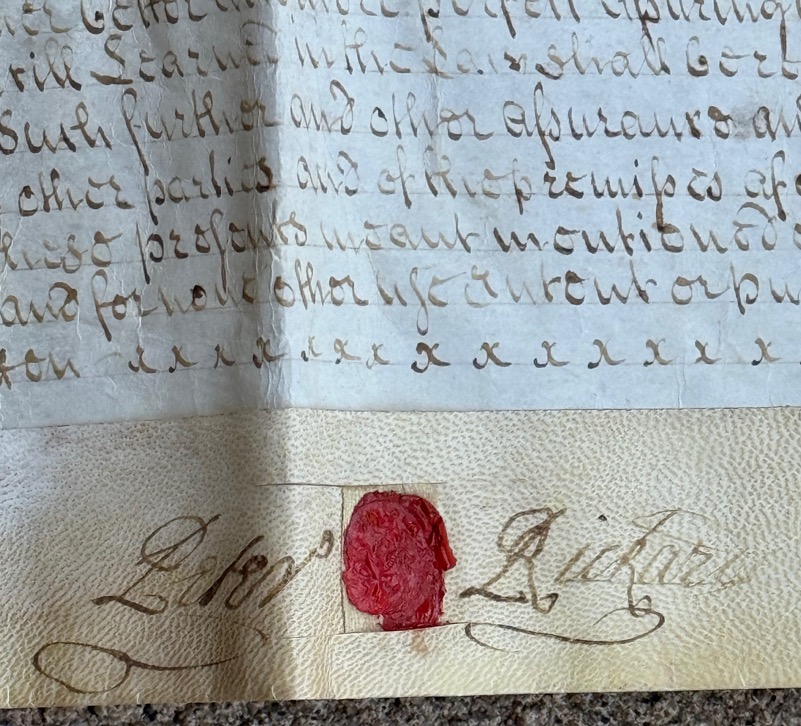 better more perfect assuring
will Learned in the Law shall bee
Such further and other assurance an
other parties and of the premisses afo
these presents meant mentioned
and for none other use Intent or pu
x x x x x x x x x x x x x x
Peter Richard